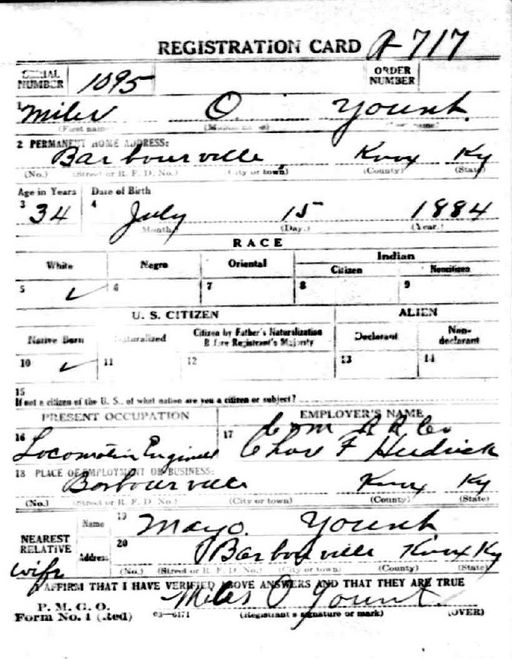 REGISTRATION CARD A-717
SERIAL NUMBER 1095 ORDER NUMBER
1 Miles O. Yount
(First name) (Middle name) (Last name)
2 PERMANENT HOME ADDRESS:
Barbourville, Knox Ky
(No.) (Street or R. F. D. No.) (City or town) (County) (State)
Age in Years Date of Birth
3 34 4 July 15 1884
(Month.) (Day.) (Year.)
RACE
White Negro Oriental Indian
Citizen Noncitizen
5 ✓ 6 7 8 9
U. S. CITIZEN ALIEN
Native Born Naturalized Citizen by Father's Naturalization Before Registrant's Majority Declarant Non-declarant
10 ✓ 11 12 13 14
15
If not a citizen of the U. S., of what nation are you a citizen or subject?
PRESENT OCCUPATION EMPLOYER'S NAME
R R Co
16 Locomotive Engineer 17 F
18 PLACE OF EMPLOYMENT OR BUSINESS:
Borbourville Knox Ky
(No.) (Street or R. F. D. No.) (City or town) (County) (State)
NEAREST RELATIVE
Name 19 Mayo. Yount
Address 20 Barbourville Knox Ky
wife (No.) (Street or R. F. D. No.) (City or town) (County) (State)
I AFFIRM THAT I HAVE VERIFIED ABOVE ANSWERS AND THAT THEY ARE TRUE
P. M. G. O.
Form No. 1 (Red) 03-6171 Miles O Yount.
(Registrant's signature or mark) (OVER)